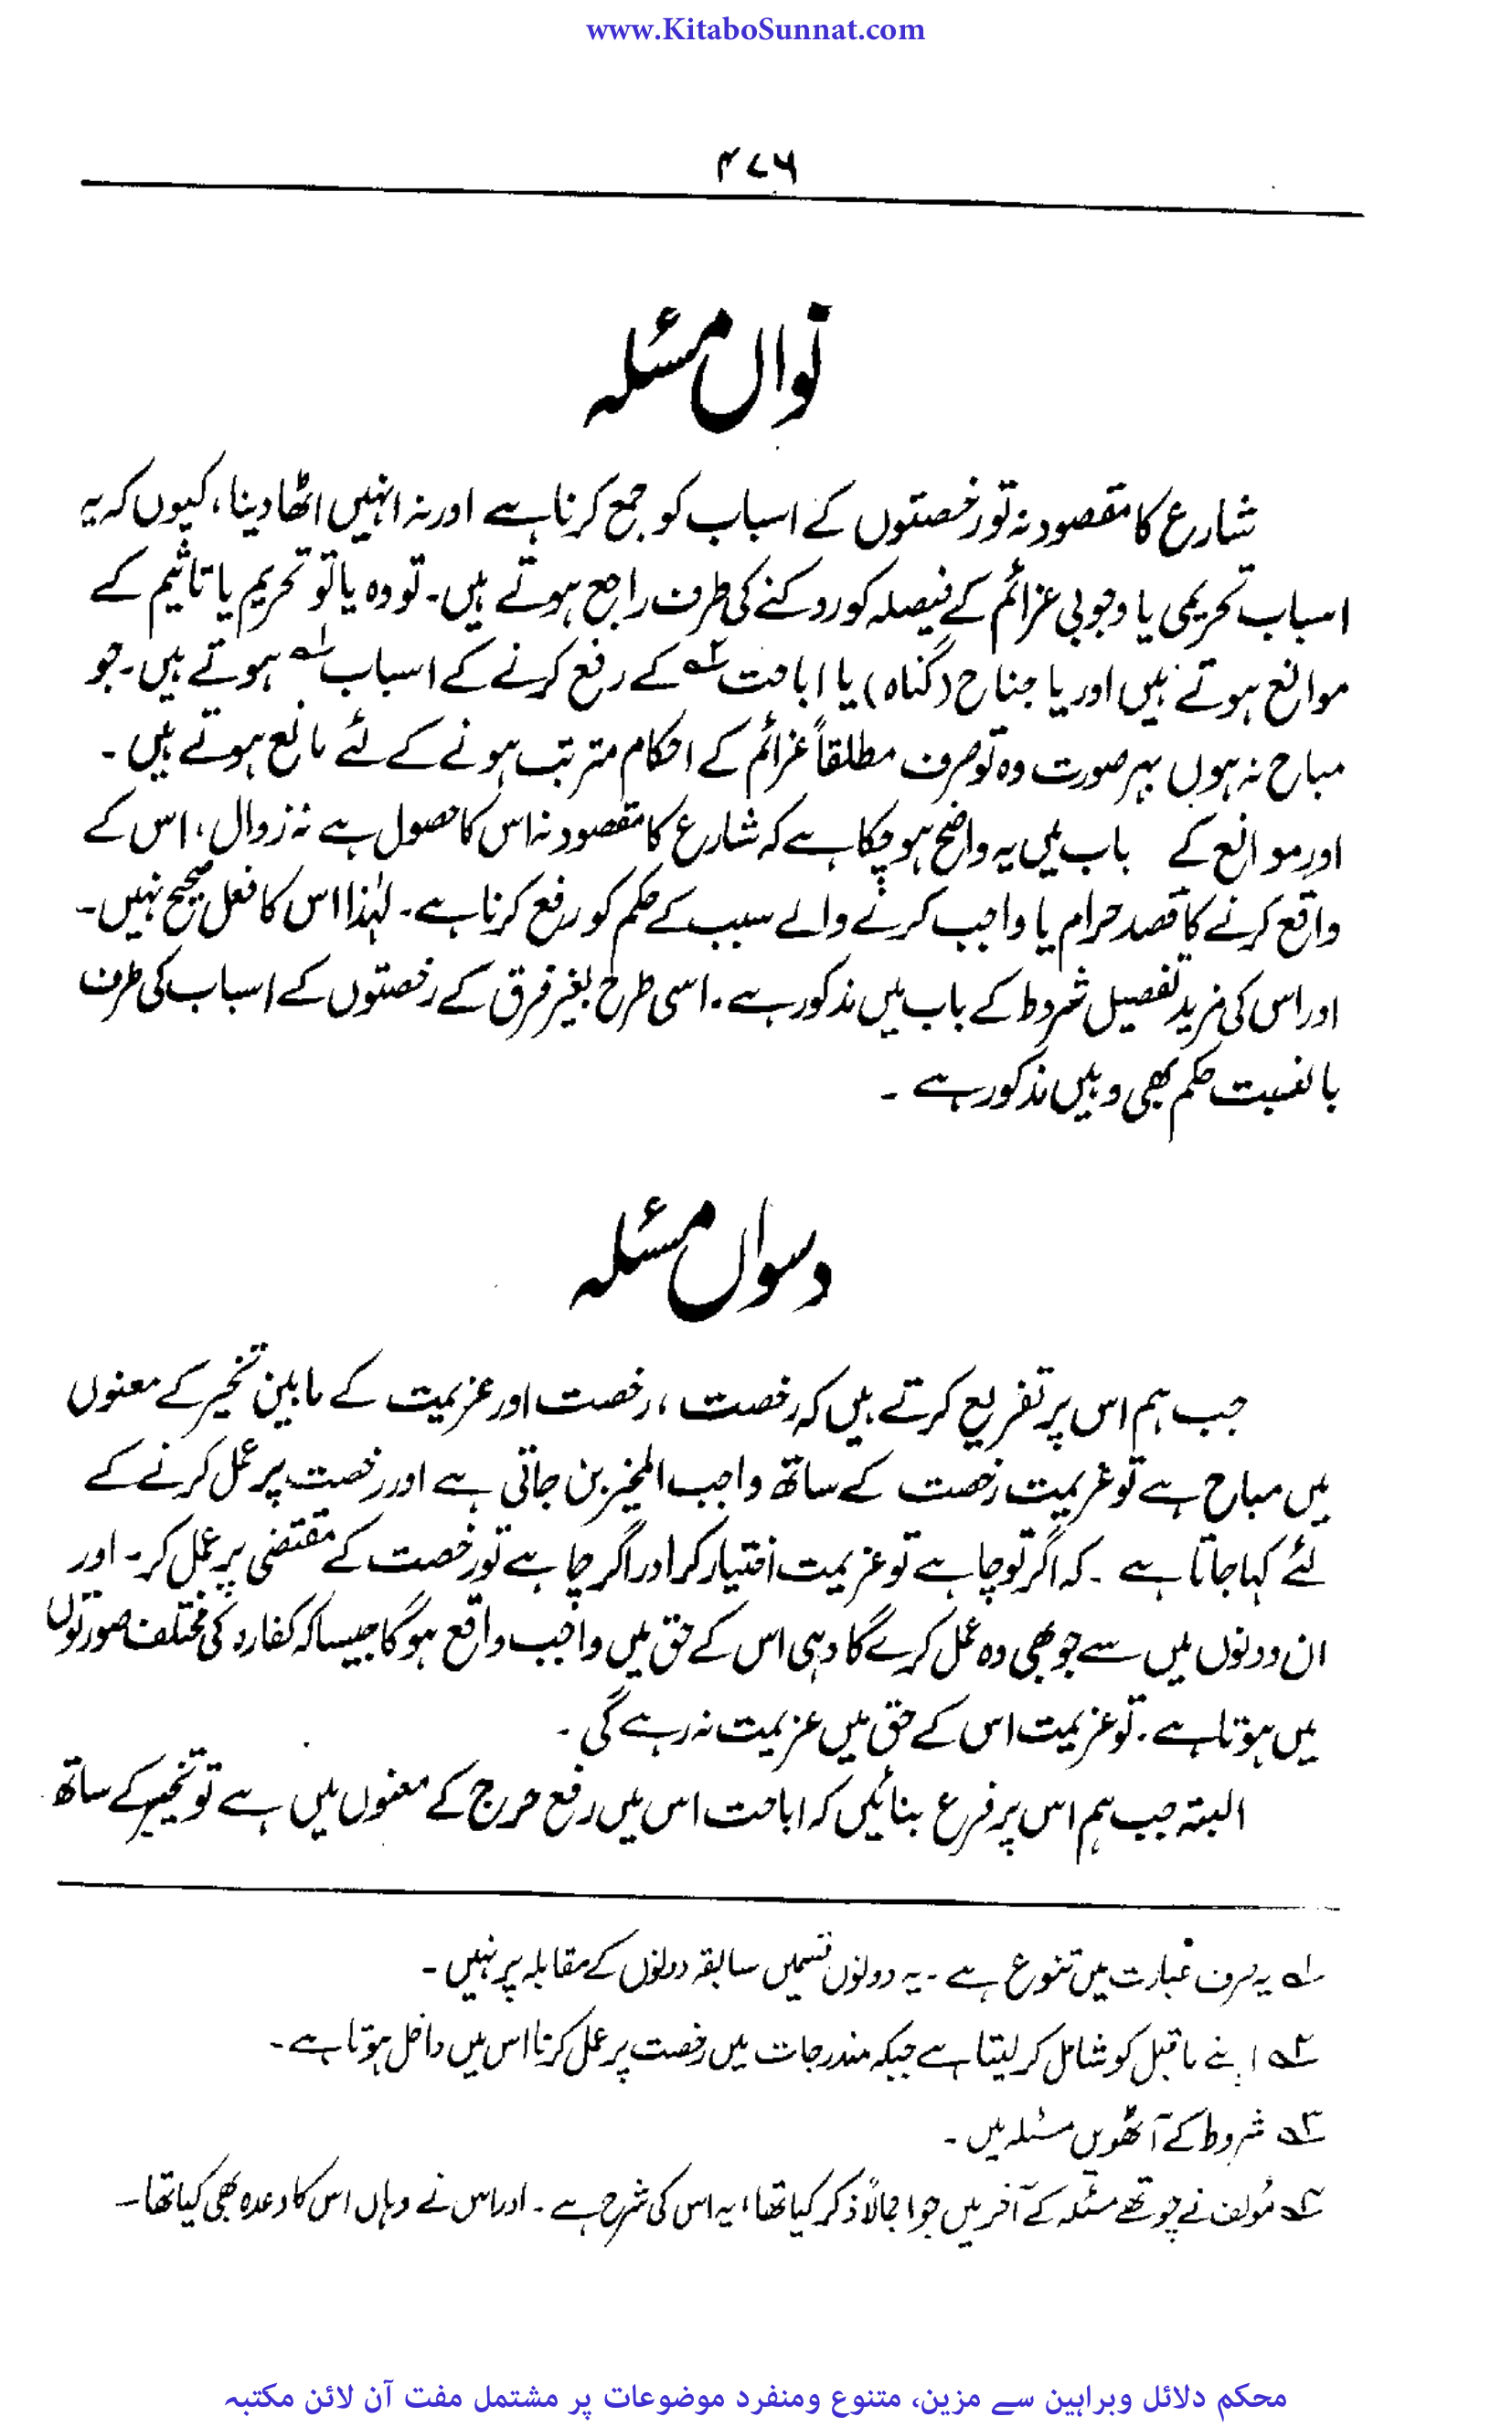 www.KitaboSunnat.com
۴۷۶
نواں مسئلہ
شارع کا مقصود نہ تو رخصتوں کے اسباب کو جمع کرنا ہے اور نہ انہیں اٹھا دینا، کیوں کہ یہ
اسباب تحریمی یا وجوبی عزائم کے فیصلہ کو روکنے کی طرف راجع ہوتے ہیں۔ تو وہ یا تو تحریم یا تاثیم کے
موانع ہوتے ہیں اور یا جناح (گناہ) یا اباحت ۲ے کے رفع کرنے کے اسباب ۱ے ہوتے ہیں۔ جو
مباح نہ ہوں بہر صورت وہ تو صرف مطلقاً عزائم کے احکام مترتب ہونے کے لئے مانع ہوتے ہیں۔
اور موانع کے باب میں یہ واضح ہو چکا ہے کہ شارع کا مقصود نہ اس کا حصول ہے نہ زوال، اس کے
واقع کرنے کا قصد حرام یا واجب کرنے والے سبب کے حکم کو رفع کرنا ہے۔ لہٰذا اس کا فعل صحیح نہیں۔
اور اس کی مزید تفصیل شروط کے باب میں مذکور ہے۔ اسی طرح بغیر فرق کے رخصتوں کے اسباب کی طرف
بالنسبت حکم بھی وہیں مذکور ہے۔
دسواں مسئلہ
جب ہم اس پر تفریع کرتے ہیں کہ رخصت، رخصت اور عزیمت کے مابین تخییر کے معنوں
میں مباح ہے تو عزیمت رخصت کے ساتھ واجب المخیر بن جاتی ہے اور رخصت پر عمل کرنے کے
لئے کہا جاتا ہے۔ کہ اگر تو چاہے تو عزیمت اختیار کر اور اگر چاہے تو رخصت کے مقتضی پر عمل کر۔ اور
ان دونوں میں سے جو بھی وہ عمل کرے گا وہی اس کے حق میں واجب واقع ہوگا جیسا کہ کفارہ کی مختلف صورتوں
میں ہوتا ہے۔ تو عزیمت اس کے حق میں عزیمت نہ رہے گی۔
البتہ جب ہم اس پر فرع بنائیں کہ اباحت اس میں رفع حرج کے معنوں میں ہے تو تخییر کے ساتھ
۱ے یہ صرف عبارت میں تنوع ہے۔ یہ دونوں قسمیں سابقہ دونوں کے مقابلہ پر نہیں۔
۲ے اپنے ماقبل کو شامل کر لیتا ہے جبکہ مندرجات میں رخصت پر عمل کرنا اس میں داخل ہوتا ہے۔
۳ے شروط کے آٹھویں مسئلہ میں۔
۴ے مؤلف نے چوتھے مسئلہ کے آخر میں جو اجمالاً ذکر کیا تھا، یہ اس کی شرح ہے۔ اور اس نے وہاں اس کا وعدہ بھی کیا تھا۔
محکم دلائل وبراہین سے مزین، متنوع ومنفرد موضوعات پر مشتمل مفت آن لائن مکتبہ